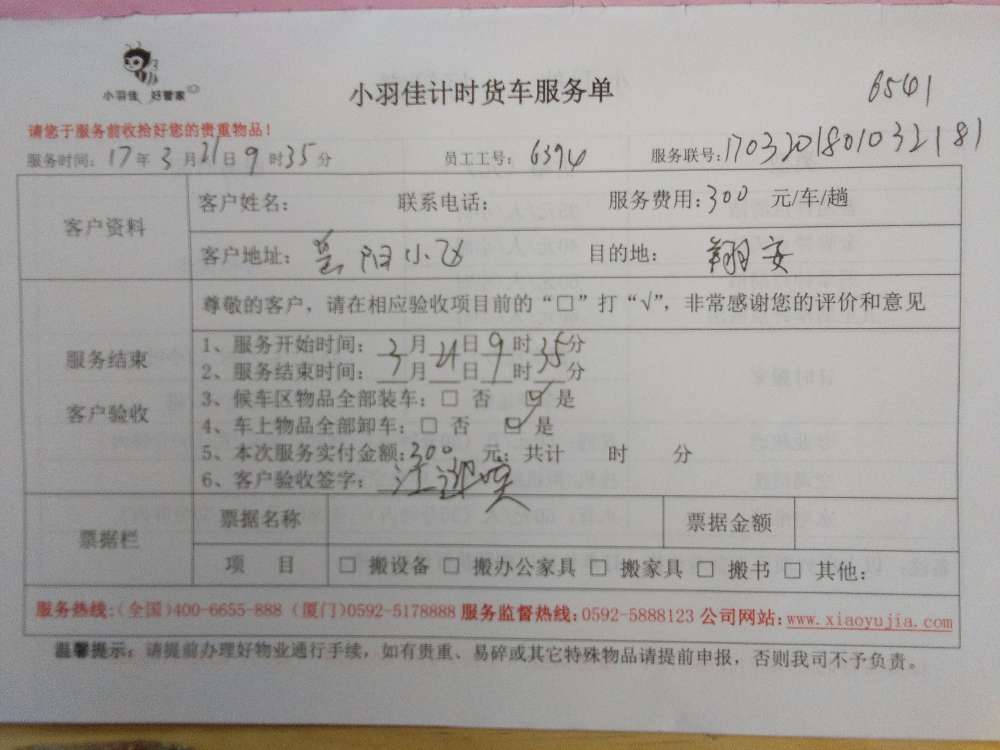 小羽佳 好管家
小羽佳计时货车服务单
6541
请您于服务前收拾好您的贵重物品！
服务时间：17年3月21日9时35分 员工工号：6394 服务联号：1703201801032181
客户资料
客户姓名： 联系电话： 服务费用：300 元/车/趟
客户地址：阳小区 目的地：翔安
服务结束
客户验收
尊敬的客户，请在相应验收项目前的“□”打“√”，非常感谢您的评价和意见
1、服务开始时间：3月21日9时35分
2、服务结束时间：__月__日__时__分
3、候车区物品全部装车：□ 否 ☑ 是
4、车上物品全部卸车：□ 否 ☑ 是
5、本次服务实付金额：300 元；共计 时 分
6、客户验收签字：
票据栏
票据名称 票据金额
项 目 □ 搬设备 □ 搬办公家具 □ 搬家具 □ 搬书 □ 其他：
服务热线：(全国)400-6655-888 (厦门)0592-5178888 服务监督热线：0592-5888123 公司网站：www.xiaoyujia.com
温馨提示：请提前办理好物业通行手续，如有贵重、易碎或其它特殊物品请提前申报，否则我司不予负责。